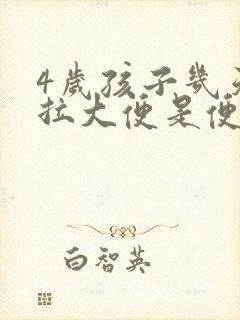 4歲孩子幾天
拉大便是便
白智英